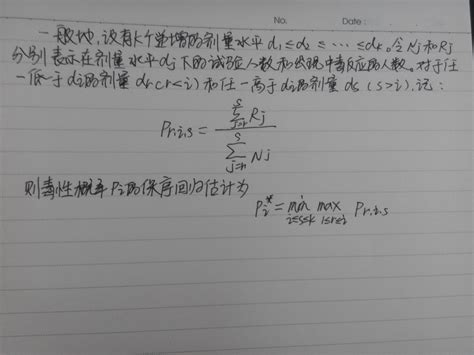 No.
Date:
一般地，设有K个递增的剂量水平 d₁≤d₂≤⋯≤dₖ。令Nj和Rj
分别表示在剂量水平dj下的试验人数和出现中毒反应的人数。对于任
一低于di的剂量dr(r<i)和任一高于di的剂量ds(s>i)，记：
Pr.i.s = \frac{\sum_{j=r}^{s} Rj}{\sum_{j=r}^{s} Nj}
则毒性概率Pi的保序回归估计为
P_i^* = \min_{i≤s≤k} \max_{1≤r≤i} Pr.i.s